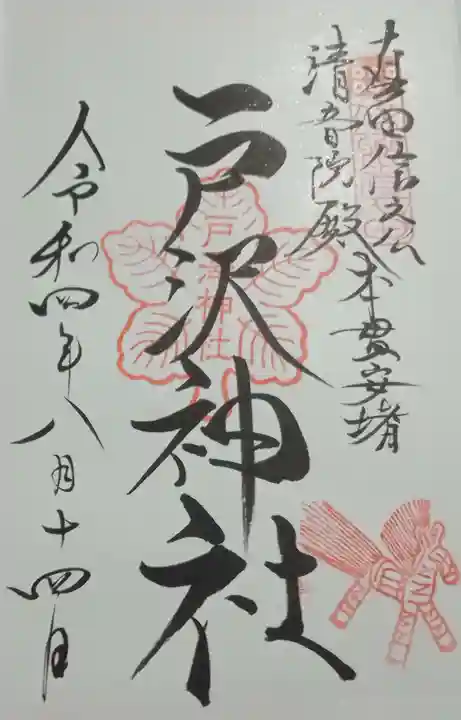 真田信之公
清音院殿 本貫安堵
戸沢神社
戸沢神社
令和四年八月十四日